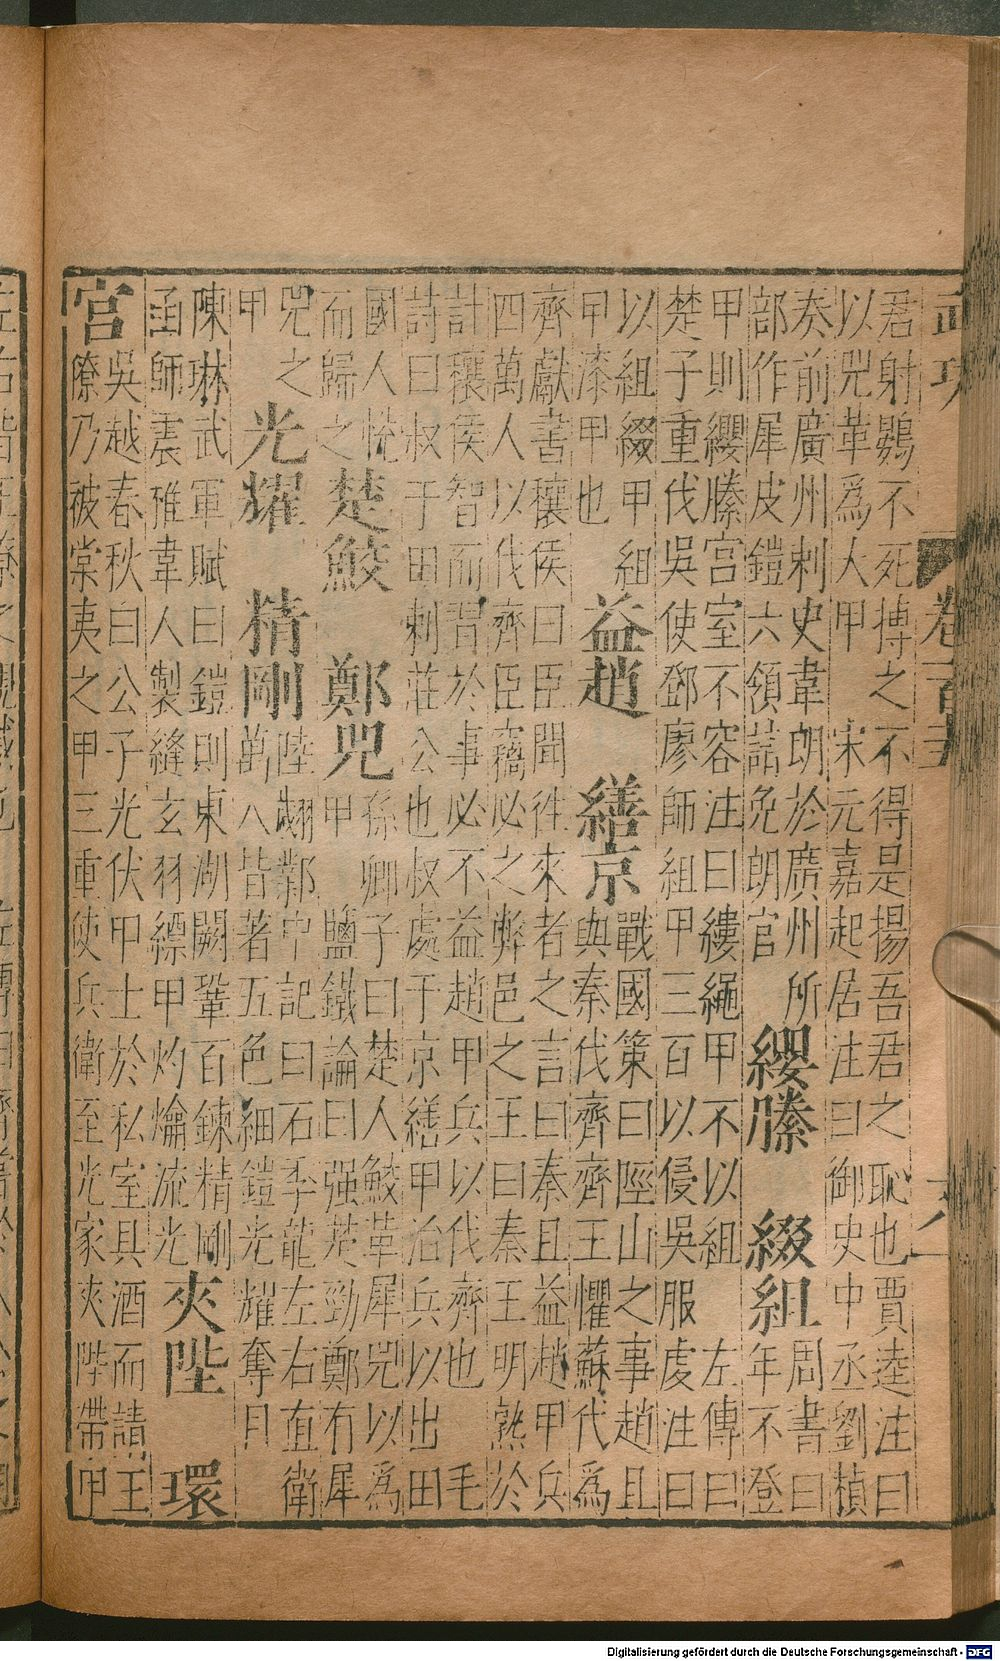 君射鴞不死搏之不得是揚吾君之恥也賈逵注曰
以兕革爲大甲　宋元嘉起居注曰御史中丞劉楨
奏前廣州刺史韋朗於廣州所
部作犀皮鎧六領請免朗官　纓縢　綴組　周書曰年不登
甲則纓縢宮室不容注曰縷繩甲不以組　左傳曰
楚子重伐吳使鄧廖師組甲三百以侵吳服虔注曰
以組綴甲組
甲漆甲也　益趙　繕京　戰國策曰陘山之事趙且
與秦伐齊齊王懼蘇代爲
齊獻書穰侯曰臣聞往來者之言曰秦且益趙甲兵
四萬人以伐齊臣竊必之弊邑之王曰秦王明熟於
計穰侯智而習於事必不益趙甲兵以伐齊也　毛
詩曰叔于田刺莊公也叔處于京繕甲治兵以出田
國人悅
而歸之　楚鮫　鄭兕　孫卿子曰楚人鮫革犀兕以為
甲　鹽鐵論曰强楚勁鄭有犀
兕之
甲　光耀　精剛　陸翽鄴中記曰石季龍左右直衛
萬人皆著五色細鎧光耀奪目
陳琳武軍賦曰鎧則東湖闕鞏百鍊精剛
函師震椎韋人製縫玄羽縹甲灼爚流光　夾陛　環
宮　吳越春秋曰公子光伏甲士於私室具酒而請王
僚乃被棠夷之甲三重使兵衛至光家夾陛帶甲
卷一百五
Digitalisierung gefördert durch die Deutsche Forschungsgemeinschaft - DFG